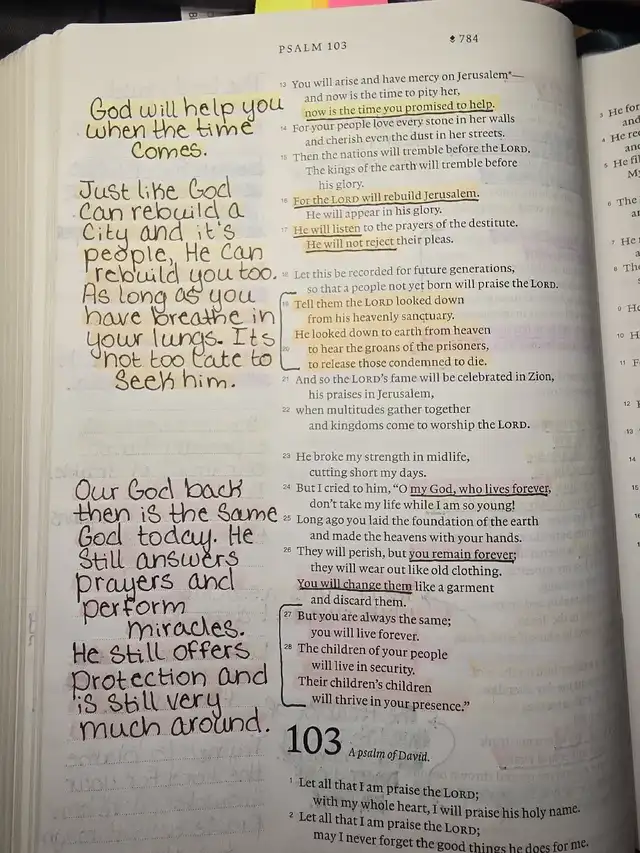 PSALM 103
784
God will help you
when the time
comes.
Just like God
can rebuild a
city and it's
people, He can
rebuild you too.
As long as you
have breathe in
your lungs. Its
not too late to
seek him.
Our God back
then is the same
God today. He
still answers
prayers and
perform
miracles.
He still offers
protection and
is still very
much around.
13 You will arise and have mercy on Jerusalem*—
and now is the time to pity her,
now is the time you promised to help.
14 For your people love every stone in her walls
and cherish even the dust in her streets.
15 Then the nations will tremble before the LORD.
The kings of the earth will tremble before
his glory.
16 For the LORD will rebuild Jerusalem.
He will appear in his glory.
17 He will listen to the prayers of the destitute.
He will not reject their pleas.
18 Let this be recorded for future generations,
so that a people not yet born will praise the LORD.
19 Tell them the LORD looked down
from his heavenly sanctuary.
He looked down to earth from heaven
20 to hear the groans of the prisoners,
to release those condemned to die.
21 And so the LORD's fame will be celebrated in Zion,
his praises in Jerusalem,
22 when multitudes gather together
and kingdoms come to worship the LORD.
23 He broke my strength in midlife,
cutting short my days.
24 But I cried to him, “O my God, who lives forever,
don't take my life while I am so young!
25 Long ago you laid the foundation of the earth
and made the heavens with your hands.
26 They will perish, but you remain forever;
they will wear out like old clothing.
You will change them like a garment
and discard them.
27 But you are always the same;
you will live forever.
28 The children of your people
will live in security.
Their children's children
will thrive in your presence.”
103 A psalm of David.
1 Let all that I am praise the LORD;
with my whole heart, I will praise his holy name.
2 Let all that I am praise the LORD;
may I never forget the good things he does for me.
3 He for
and
4 He re
5 He fil
My
6 The
7 He
8 The
9 He
10 H
11 F
12
13
14
15
16